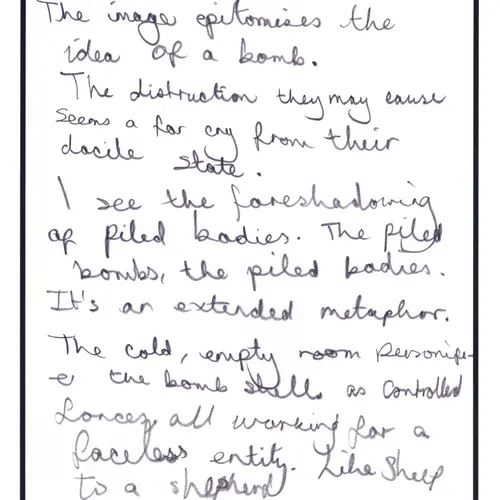 The image epitomises the
idea of a bomb.
The distruction they may cause
seems a far cry from their
docile state.
I see the foreshadowing
of piled bodies. The piled
bombs, the piled bodies.
It's an extended metaphor.
The cold, empty room personifi-
e the bomb shells as controlled
forces, all working for a
faceless entity. Like sheep
to a shepherd